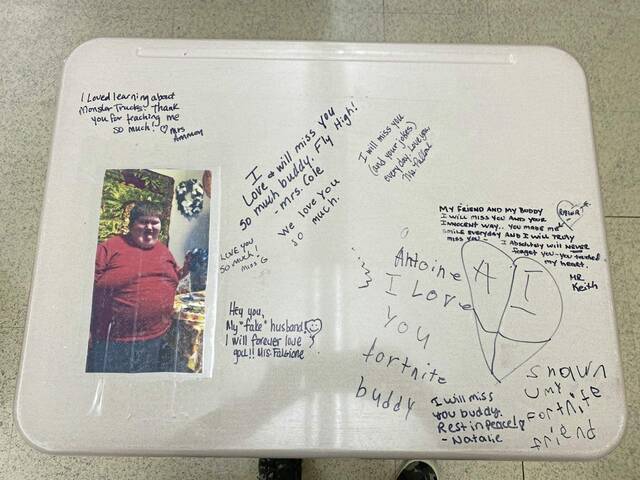 I Loved learning about
Monster Trucks. Thank
you for teaching me
so much! Mrs
I
Love & will miss you
so much buddy. Fly High!
- Mrs. Cole
we love you
so much.
I will miss you
(and your jokes)
everyday. Love you
Love you
so much!
Miss G
Hey you,
My "fake" husband!
I will forever love
you!! Mrs. Falcione
My friend and my buddy
I will miss you and your
innocent way.. you made me
smile everyday and I will truly
miss you - I absolutely will NEVER
forget you - you touched
my heart.
MR
Keith
Antoine
I Love
you
fortnite
buddy
A I
I will miss
you buddy.
Rest in peace!
- Natalie
Shawn
my
Fortnite
friend